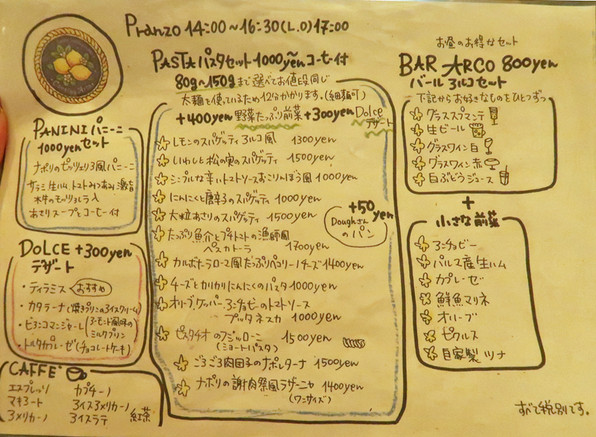 Pranzo 14:00~16:30(L.O)17:00
PANINI パニーニ
1000yenセット
ナポリのピッツェリア風パニーニ
サラミ 生ハム トマト
水牛のモッツァレラ入
あさりスープとコーヒー付
DOLCE +300yen
デザート
・ティラミス おすすめ
・カタラーナ(焼きプリンのアイスクリーム)
・ビアンコマンジャーレ(アーモンド風味のミルクプリン
・トルタカプレーゼ(チョコレートケーキ)
CAFFE'
エスプレッソ カプチーノ
マキアート アイスアメリカーノ
アメリカーノ アイスラテ 紅茶
PASTA パスタセット 1000yen~コーヒー付
80g~150gまで選べてお値段同じ
太麺を使っているため12分かかります。(細麺可)
+400yen 野菜たっぷり前菜 +300yen Dolce
デザート
レモンのスパゲッティ アルコ風 1300yen
いわしと松の実のスパゲッティ 1500yen
シンプルな辛いトマトソース おこりんぼう風 1000yen
にんにくと唐辛子のスパゲッティ 1000yen
大粒あさりのスパゲッティ 1500yen
たっぷり魚介とプチトマトの漁師風
ペスカトーラ 1700yen
カルボナーラローマ風 たっぷりパルミジャーノチーズ 1400yen
チーズとカリカリにんにくのパスタ 1000yen
オリーブ、ケッパー、アンチョビーのトマトソース
プッタネスカ 1000yen
ピスタチオのフジッローニ 1500yen
(ショートパスタ)
ごろごろ肉団子のナポレターナ 1500yen
ナポリの謝肉祭風ラザーニャ 1400yen
(ワンサイズ)
+50yen
Doughさん
のパン
お昼のお得なセット
BAR ARCO 800yen
バール アルコセット
下記からお好きなものをひとつずつ
グラススプマンテ
生ビール
グラスワイン白
グラスワイン赤
白ぶどうジュース
+
小さな前菜
アンチョビー
パルマ産生ハム
カプレーゼ
鮮魚マリネ
オリーブ
ピクルス
自家製ツナ
すべて税別です。